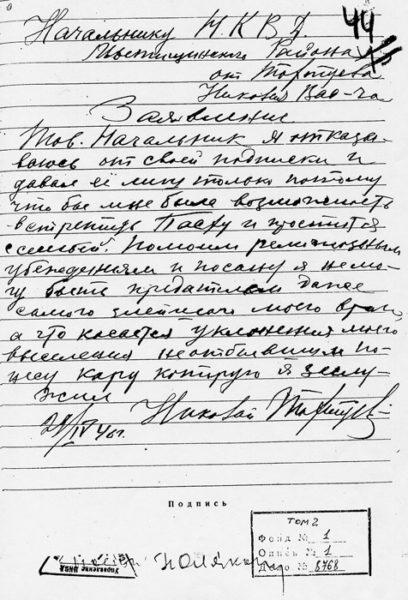 44
Начальнику Н.К.В.Д.
Мытищинского Района
от
Николая Вас-ча
Заявление
Тов. Начальник я отказы
ваюсь от своей подписки и
давал её лишь только потому
что бы мне была возможность
встретить Пасху и простится
с семьей. По моим религиозным
убеждениям и посану я не мо
гу быть предателем даже
самого злейшего моего врага
а что касается уклонения моего
выселения не отбывши по
несу кару которую я заслу
жил
29/IV 40г. Николай
Подпись
ТОМ 2
Фонд № 1
Опись № 1
Дело № 8768